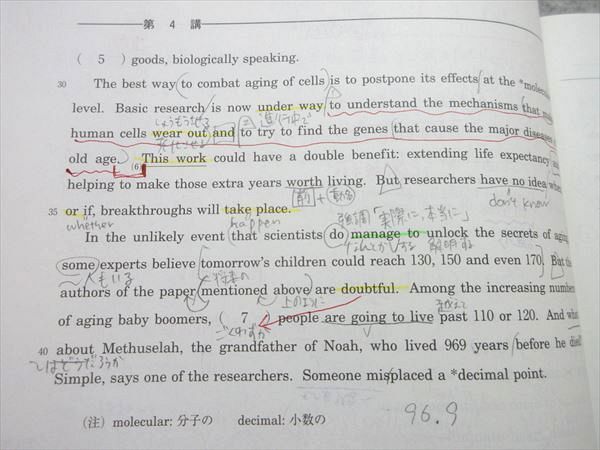 第 4 講
( 5 ) goods, biologically speaking.
30 The best way to combat aging of cells is to postpone its effects at the *molec
level. Basic research is now under way to understand the mechanisms that
human cells wear out and to try to find the genes that cause the major diseases
old age. (6) This work could have a double benefit: extending life expectancy
helping to make those extra years worth living. But researchers have no idea
前 + 動名
don't know
35 or if, breakthroughs will take place.
whether
happen
強調「実際に、本当に」
In the unlikely event that scientists do manage to unlock the secrets of aging
なんとか〜する
some experts believe tomorrow's children could reach 130, 150 and even 170. But
〜人もいる
authors of the paper mentioned above are doubtful. Among the increasing number
上の
of aging baby boomers, ( 7 ) people are going to live past 110 or 120. And
ごくわずか
越えて
40 about Methuselah, the grandfather of Noah, who lived 969 years before he died
〜はどうだろうか
Simple, says one of the researchers. Someone misplaced a *decimal point.
(注) molecular: 分子の decimal: 小数の
96.9